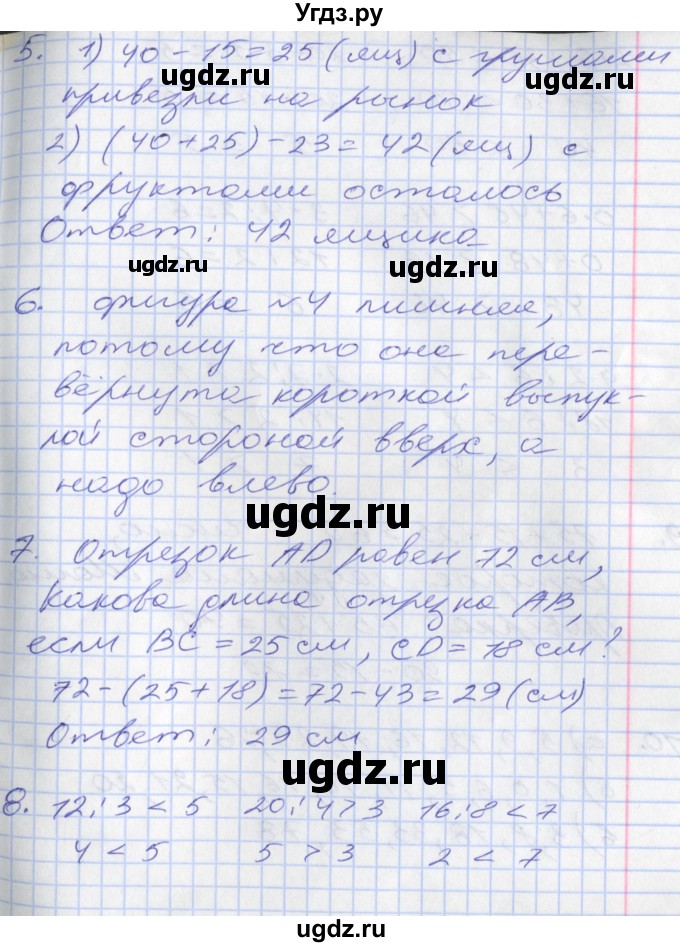 Угдз.ру
5. 1) 40 - 15 = 25 (ящ) с грушами
ugdz.ru
ugdz.ru
привезли на рынок
2) (40 + 25) - 23 = 42 (ящ) с
ugdz.ru
ugdz.ru
фруктами осталось
Ответ: 42 ящика
ugdz.ru
ugdz.ru
6. фигура №4 лишняя,
потому что она пере-
вёрнута короткой выпук-
лой стороной вверх, а
надо влево.
ugdz.ru
7. Отрезок AD равен 72 см,
Какова длина отрезка AB,
если BC = 25 см, CD = 18 см?
72 - (25 + 18) = 72 - 43 = 29 (см)
Ответ: 29 см
ugdz.ru
8. 12 : 3 < 5 20 : 4 > 3 16 : 8 < 7
4 < 5 5 > 3 2 < 7
ugdz.ru
ugdz.ru